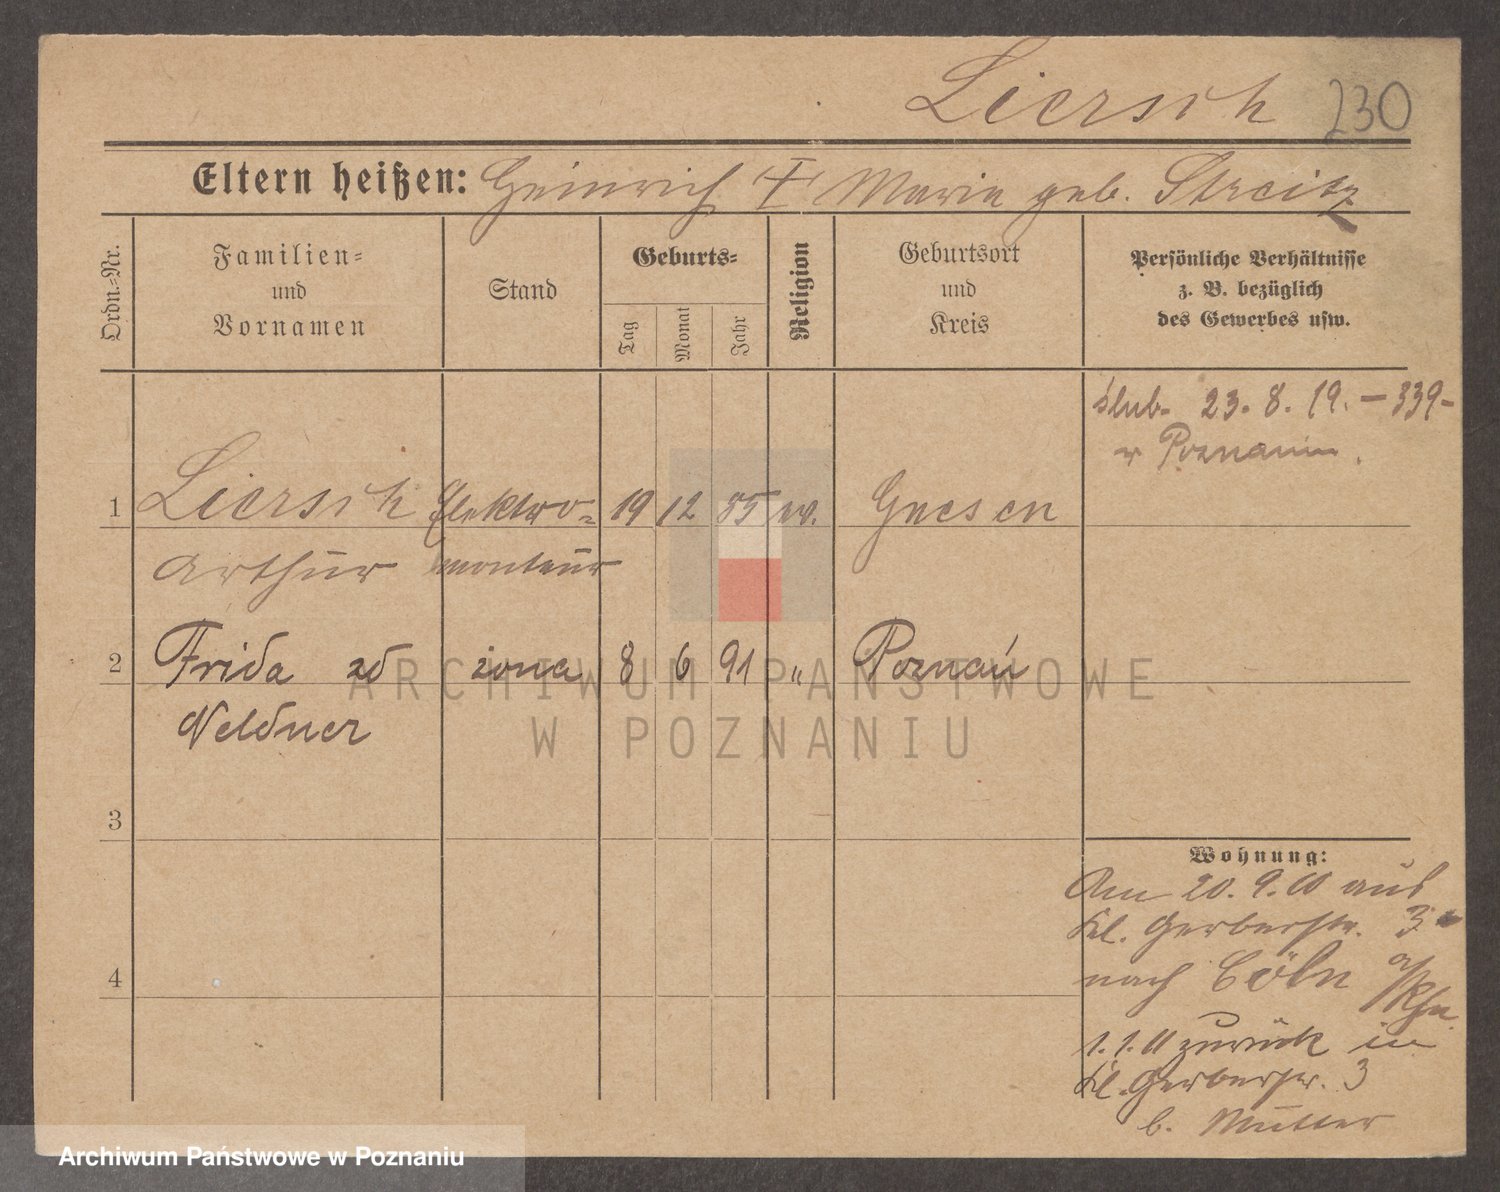 Liersch 230
Eltern heißen: Heinrich Marie geb. Streitz
Ordn.-Nr.
Familien-
und
Vornamen
Stand
Geburts-
Tag
Monat
Jahr
Religion
Geburtsort
und
Kreis
Persönliche Verhältnisse
z. B. bezüglich
des Gewerbes usw.
ślub. 23. 8. 19. - 339-
w Poznaniu.
1 Liersch Elektro- 19 12 85 ev. Gnesen
Arthur monteur
2 Frida żona 8 6 91 " Poznań
3
4
Wohnung:
Am 20. 9. 10 aus
Kl. Gerberstr. 3
nach Cöln a/Rhn.
1. 1. 11 zurück in
Kl. Gerberstr. 3
b. Mutter
ARCHIWUM PAŃSTWOWE
W POZNANIU
Archiwum Państwowe w Poznaniu